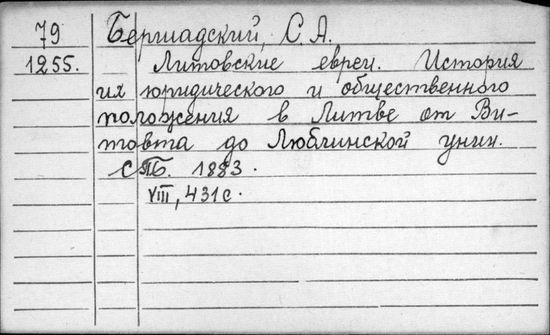 79 Бершадский, С. А.
1255. Литовские евреи. История
их юридического и общественного
положения в Литве от Ви-
товта до Люблинской унии.
СПБ. 1883.
VIII, 431 с.